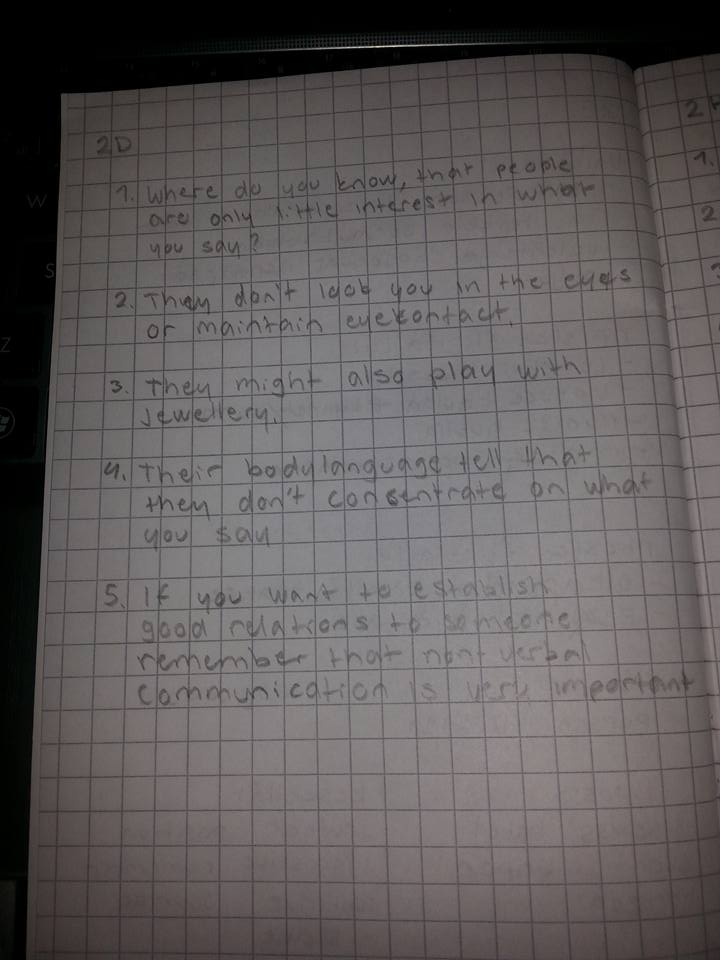 2D
1. Where do you know, that people
are only little interest in what
you say?
2. They don't look you in the eyes
or maintain eyekontact.
3. They might also play with
jewellery.
4. Their bodylanguage tell that
they don't consentrate on what
you say
5. If you want to establish
good relations to someone
remember that nont verbal
communication is very important
2
1.
2.
W
S
Z